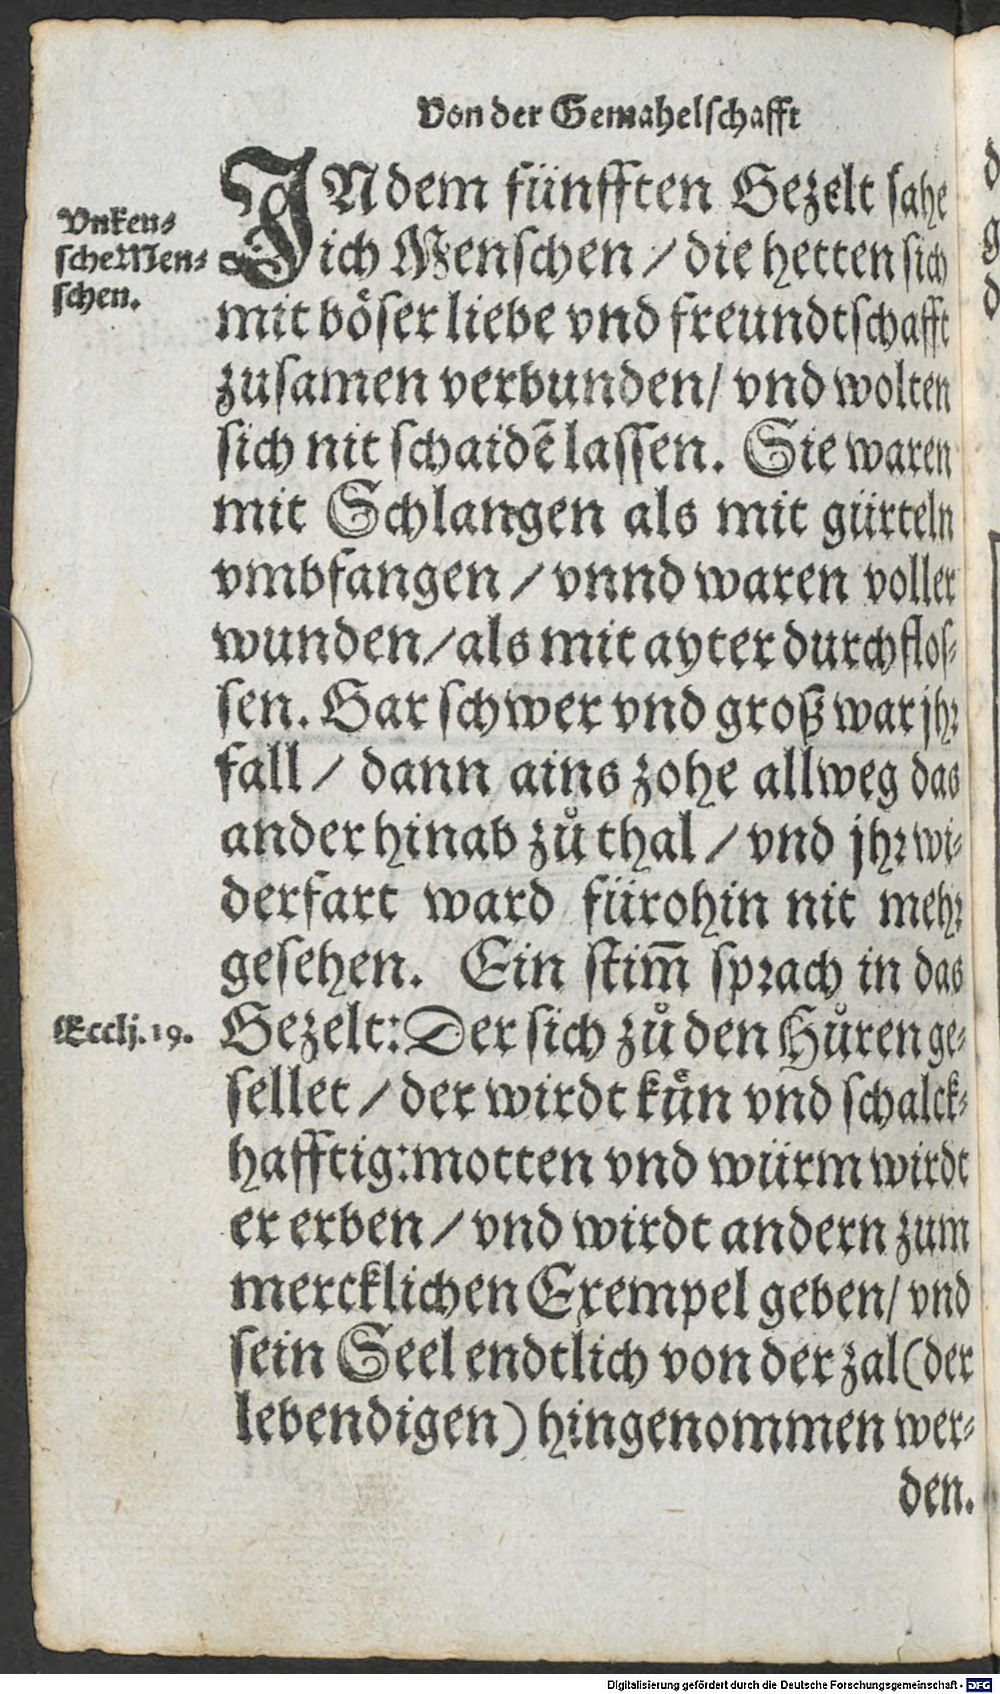 Von der Gemahelschafft
Vnkeu⸗
sche Men⸗
schen.
IN dem fünfften Gezelt sahe
ich Menschen / die hetten sich
mit böser liebe vnd freundtschafft
zusamen verbunden / vnd wolten
sich nit schaidē lassen. Sie waren
mit Schlangen als mit gürteln
vmbfangen / vnnd waren voller
wunden / als mit ayter durchflos⸗
sen. Gar schwer vnd groß war jhr
fall / dann ains zohe allweg das
ander hinab zů thal / vnd jhr wi⸗
derfart ward fürohin nit mehr
gesehen. Ein stim̄ sprach in das
Ecclj. 19.
Gezelt: Der sich zů den Hůren ge⸗
sellet / der wirdt kůn vnd schalck⸗
hafftig: motten vnd würm wirdt
er erben / vnd wirdt andern zum
mercklichen Exempel geben / vnd
sein Seel endtlich von der zal (der
lebendigen) hingenommen wer⸗
den.
Digitalisierung gefördert durch die Deutsche Forschungsgemeinschaft - DFG